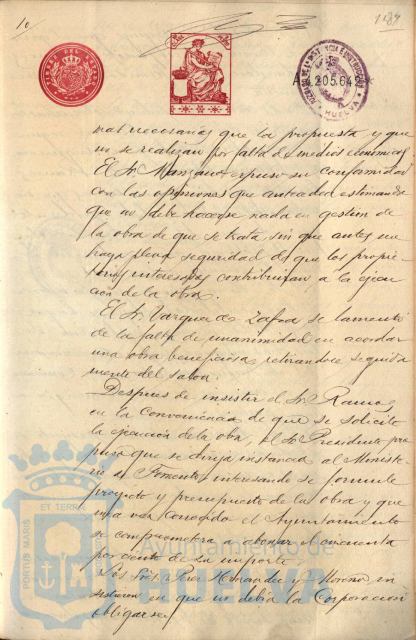 10
187
A. 205.642
HUELVA
mas necesarias que la propuesta y que
no se realizan por falta de medios económicos.
El Sr. Manzano expuso su conformidad
con las opiniones que anteceden estimando
que no debe hacerse nada en gestión de
la obra de que se trata sin que antes se
haya plena seguridad de que los propie-
tarios interesados contribuyan a la ejecu-
ción de la obra.
El Sr. Vazquez de Zafra se lamentó
de la falta de unanimidad en acordar
una obra beneficiosa retirandose seguida
mente del salon.
Despues de insistir el Sr. Ramos
en la conveniencia de que se solicite
la ejecución de la obra, el Sr. Presidente pro
puso que se dirija instancia al Ministe-
rio de Fomento interesando se formule
proyecto y presupuesto de la obra y que
una vez conocido el Ayuntamiento
se comprometera a abonar el cincuenta
por ciento de su importe.
Los Sres. Perez Hernandez y Moreno in
sistieron en que no debia la Corporación
obligarse
PORTUS MARIS
ET TERRAE
Ayuntamiento de
HUELVA